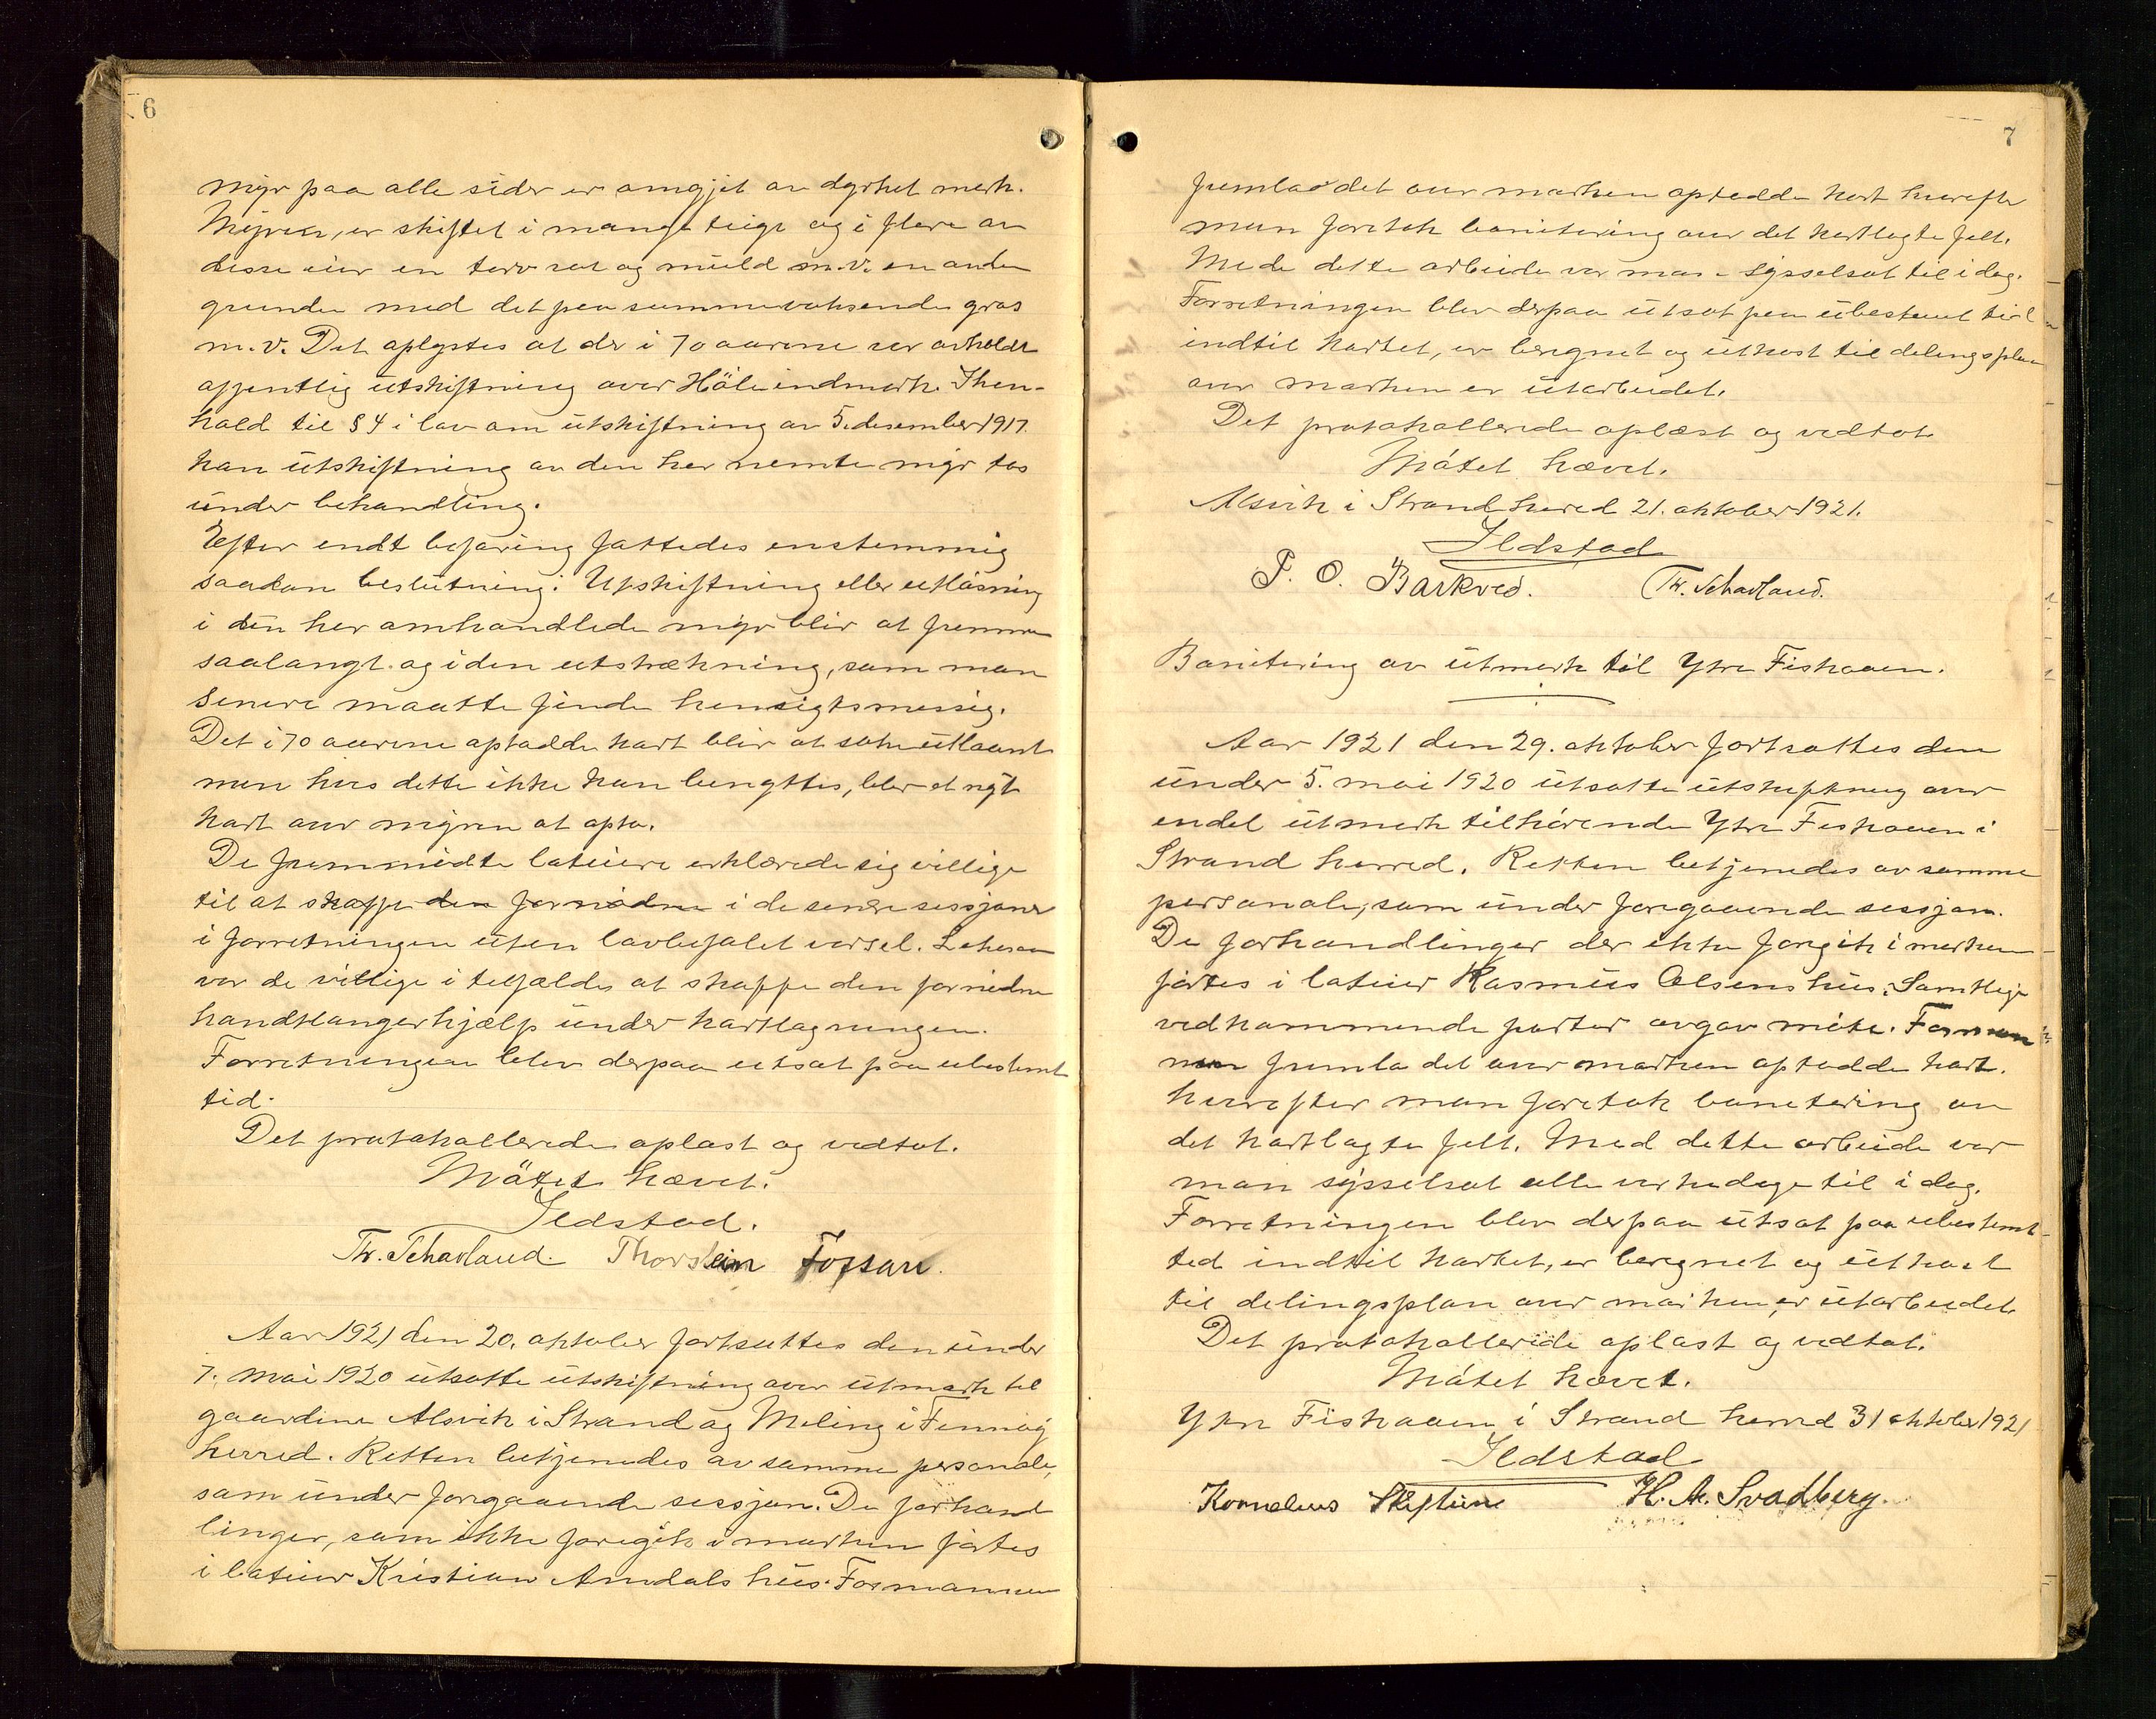 6
myr paa alle sider er omgjet av dyrket mark.
Myren, er skiftet i mange teige og i flere av
disse eier en torv ret og muld m.v. en anden
grunden med det paa sommervoksende gras
m.v. Det oplystes at der i 70 aarene var avholdt
offentlig utskiftning over Höle indmark. Ihen-
hold til § 4 i lov om utskiftning av 5. desember 1917.
kan utskiftning av den her nemte myr tas
under behandling.
Efter endt befaring fattedes enstemmig
saadan beslutning: Utskiftning eller utløsning
i den her omhandlede myr blir at fremme
saalangt og i den utstrækning, som man
senere maatte finde hensigtsmessig.
Det i 70 aarene optadde kart blir at søke utlaant
men hvis dette ikke kan benyttes, blir et nyt
kart over myren at opta.
De fremmødte lodeiere erklærede sig villige
til at skaffe den fornødne i de senere sessjoner
i forretningen uten lovbefalet varsel. Lokesom
var de villige i tilfælde at skaffe den fornødne
handtlangerhjælp under kartlagningen.
Forretningen blev derpaa utsat paa ubestemt
tid.
Det protokollerede oplæst og vedtat.
Møtet hævet.
Ildstad.
Th. Schavland. Thorstein Fossan.
Aar 1921 den 20. oktober fortsattes den under
7. mai 1920 utsatte utskiftning over utmark til
gaardene Alsvik i Strand og Meling i Fennøy
herred. Retten betjenedes av samme personale,
som under foregaaende sessjon. De forhand
linger, som ikke foregik i marken førtes
i lodeier Kristian Amdals hus. Formannen
7
fremla det over marken optadde kart hvorefter
man foretok bonitering over det kartlagte felt.
Mede dette arbeide var man sysselsat til i dag.
Forretningen blev derpaa utsat paa ubestemt tid
indtil kartet, er beregnet og utkast til delingsplan
over marken er utarbeidet.
Det protokollerede oplæst og vedtat.
Møtet hævet.
Alsvik i Strand herred 21. oktober 1921.
Ildstad
P. O. Barkved. Th. Schavland.
Bonitering av utmark til Ytre Fiskaaen.
Aar 1921 den 29. oktober fortsattes den
under 5. mai 1920 utsatte utskiftning over
endel utmark tilhørende Ytre Fiskaaen i
Strand herred. Retten betjenedes av samme
personale, som under foregaaende sessjon.
De forhandlinger der ikke foregik i marken
førtes i lodeier Rasmus Olsens hus. Samtlige
vedkommende parter avgav møte. Forman
nen fremla det over marken optadde kart.
hvorefter man foretok bonitering av
det kartlagte felt. Med dette arbeide var
man sysselsat alle virkedage til i dag.
Forretningen blev derpaa utsat paa ubestemt
tid indtil kartet, er beregnet og utkast
til delingsplan over marken, er utarbeidet.
Det protokollerede oplæst og vedtat.
Møtet hævet.
Ytre Fiskaaen i Strand herred 31 oktober 1921
Ildstad
Kornelius H. A. Svadberg.